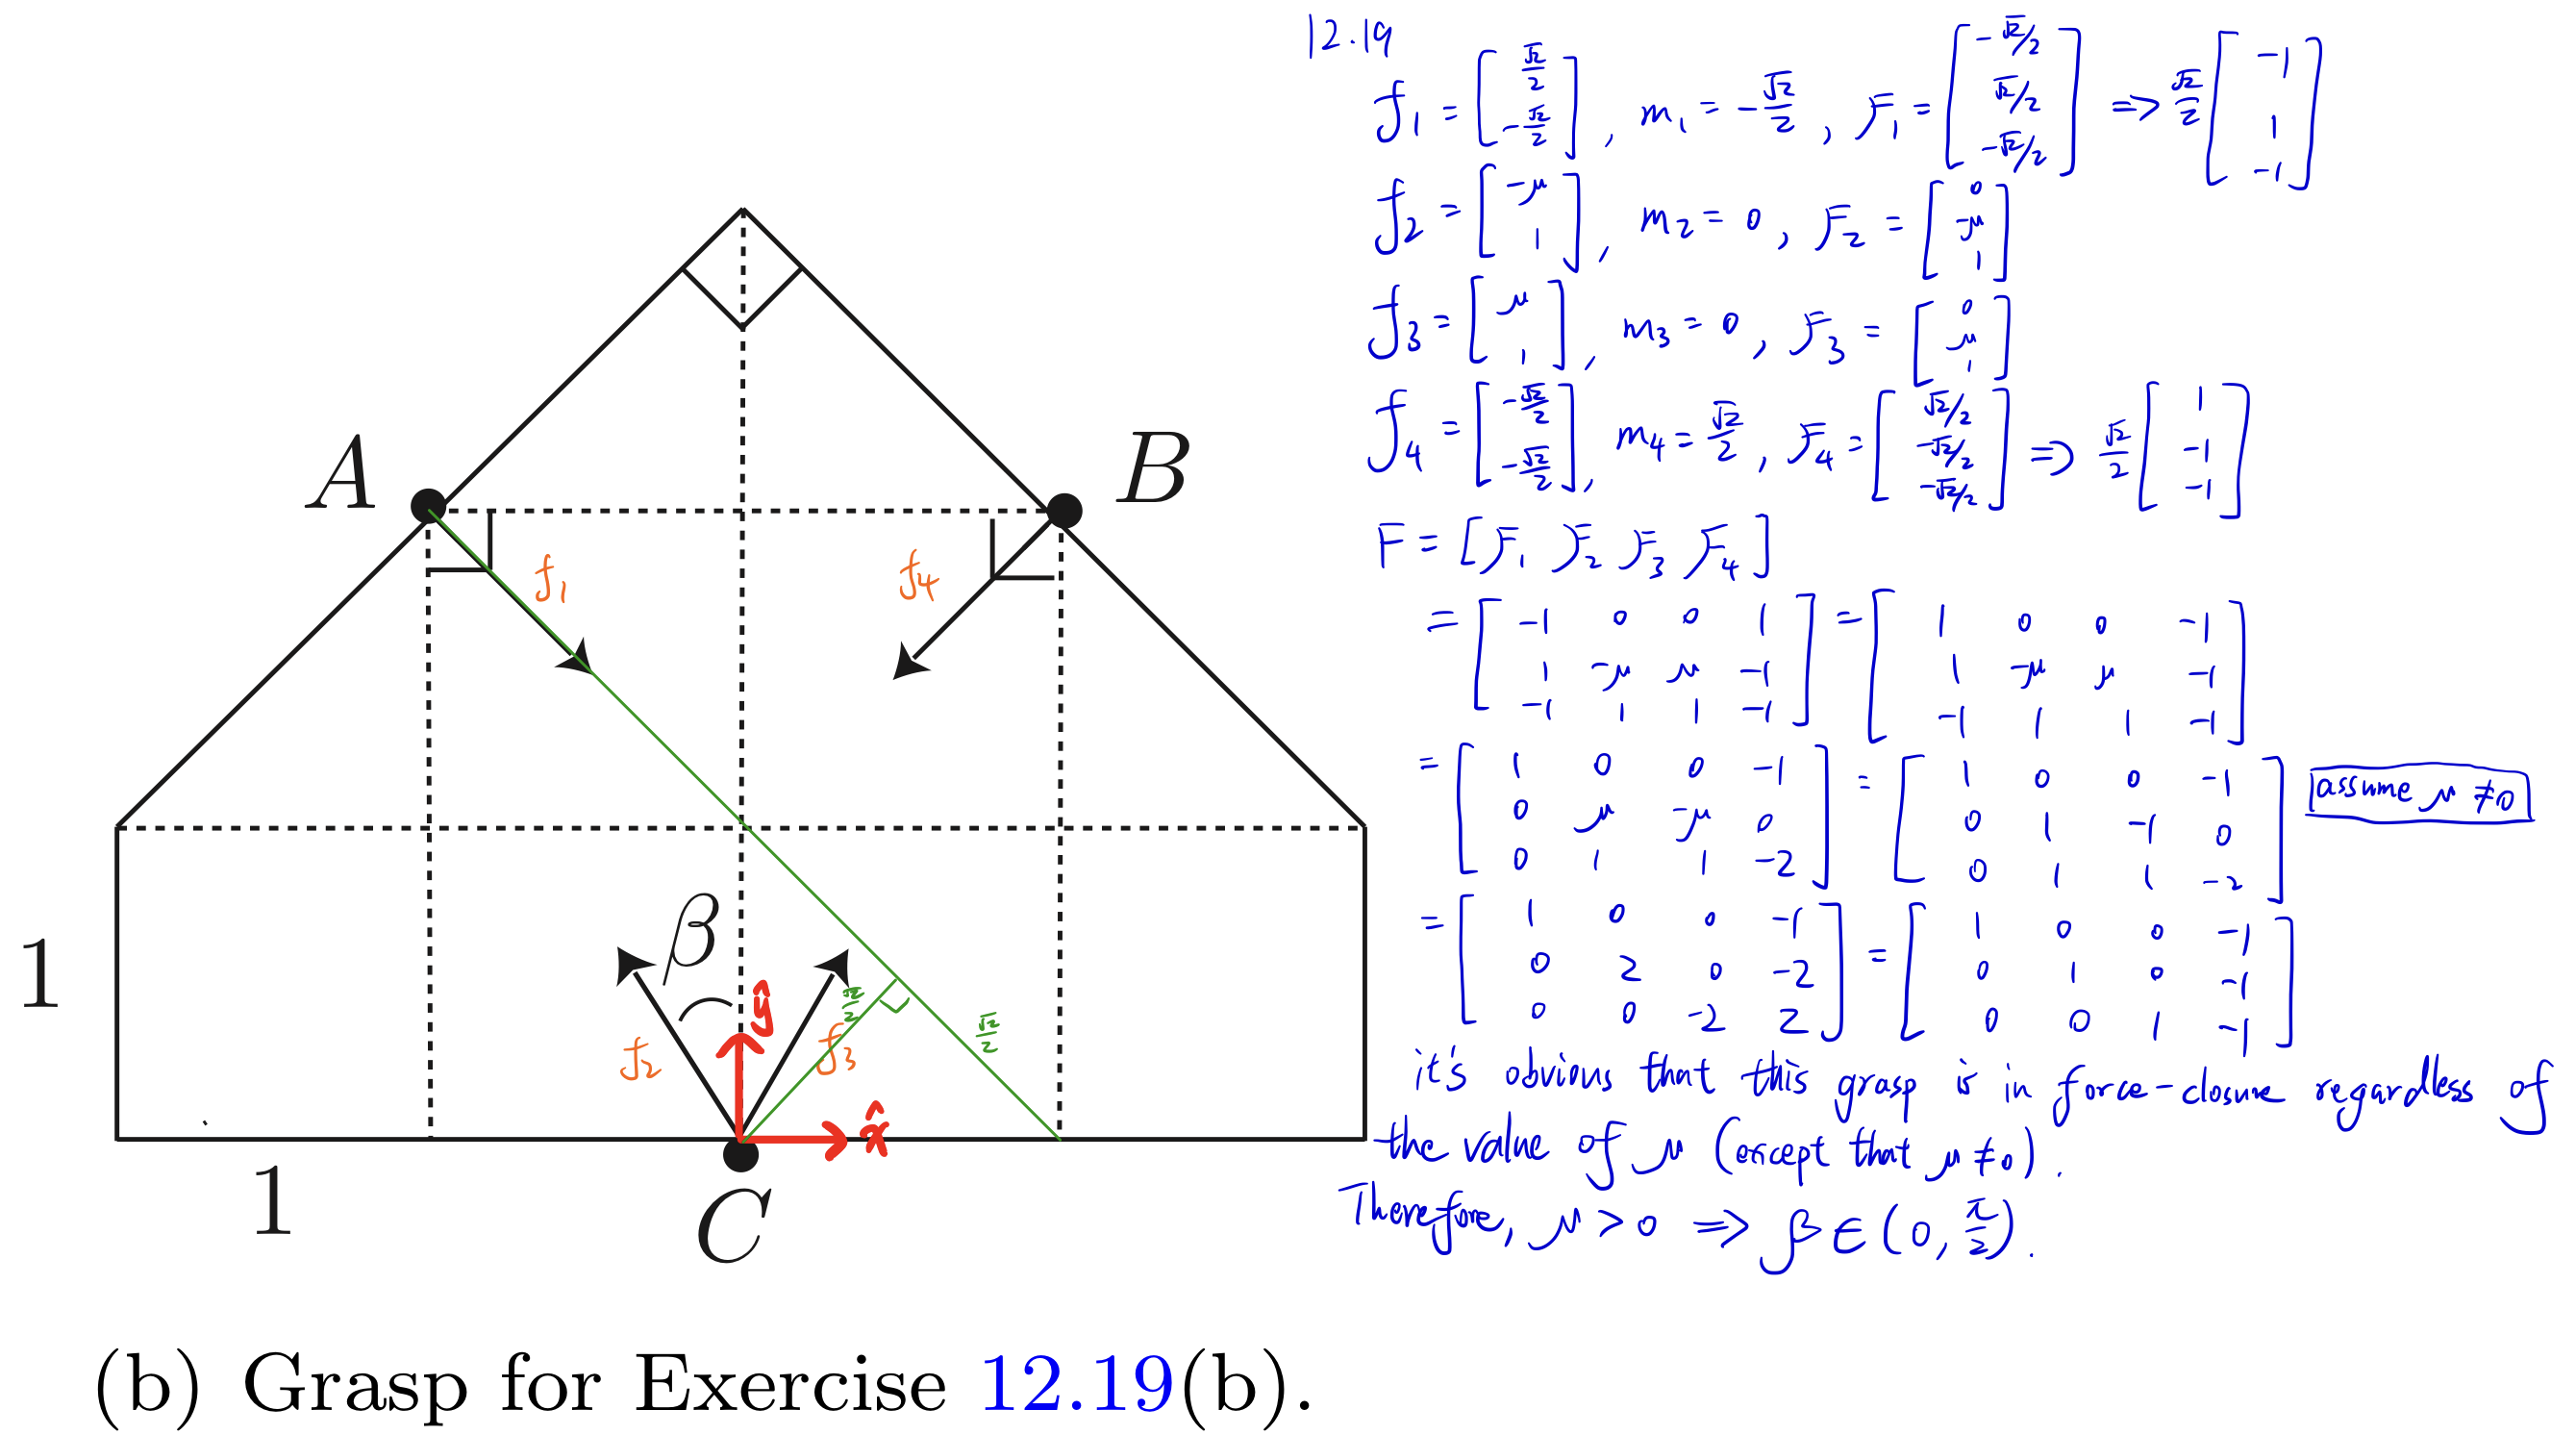 12.19
f₁ = [ √2/2 ; -√2/2 ], m₁ = -√2/2, F₁ = [ -√2/2 ; √2/2 ; -√2/2 ] => √2/2 [ -1 ; 1 ; -1 ]
f₂ = [ -μ ; 1 ], m₂ = 0, F₂ = [ 0 ; -μ ; 1 ]
f₃ = [ μ ; 1 ], m₃ = 0, F₃ = [ 0 ; μ ; 1 ]
f₄ = [ -√2/2 ; -√2/2 ], m₄ = √2/2, F₄ = [ √2/2 ; -√2/2 ; -√2/2 ] => √2/2 [ 1 ; -1 ; -1 ]
F = [ F₁ F₂ F₃ F₄ ]
= [ -1 0 0 1 ; 1 -μ μ -1 ; -1 1 1 -1 ] = [ 1 0 0 -1 ; 1 -μ μ -1 ; -1 1 1 -1 ]
= [ 1 0 0 -1 ; 0 μ -μ 0 ; 0 1 1 -2 ] = [ 1 0 0 -1 ; 0 1 -1 0 ; 0 1 1 -2 ] assume μ ≠ 0
= [ 1 0 0 -1 ; 0 2 0 -2 ; 0 0 -2 2 ] = [ 1 0 0 -1 ; 0 1 0 -1 ; 0 0 1 -1 ]
it's obvious that this grasp is in force-closure regardless of
the value of μ (except that μ ≠ 0).
Therefore, μ > 0 => β ∈ (0, π/2).
A
B
f₁
f₄
β
ŷ
√2/2
√2/2
f₂
f₃
x̂
1
1
C
(b) Grasp for Exercise 12.19(b).